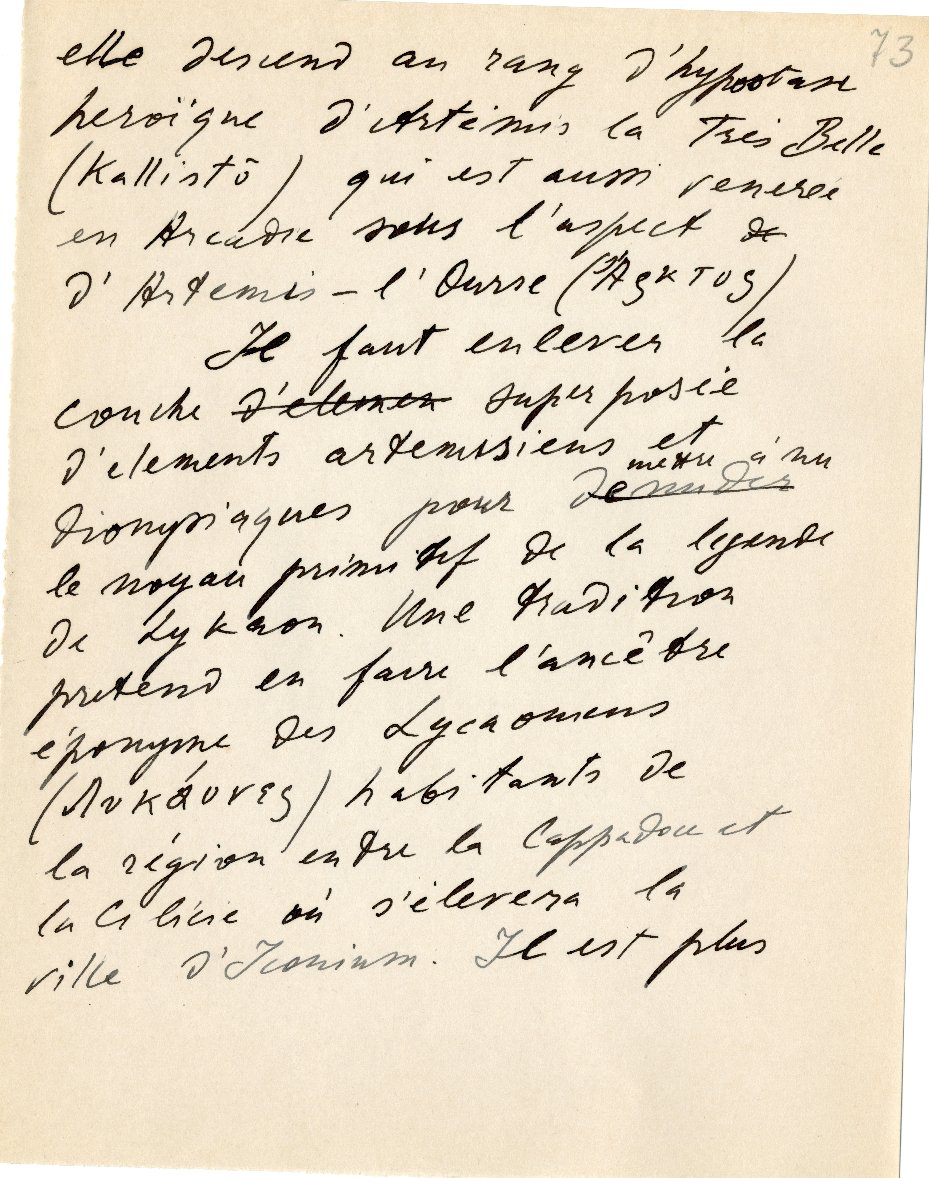 73
elle descend au rang d'hypostase
heroïque d'Artémis la Très Belle
(Kallistô) qui est aussi venerée
en Arcadie sous l'aspect de
d'Artemis – l'Ourse (Ἄρκτος)
Il faut enlever la
couche d'elemen superposée
d'elements artemisiens et
mettre à nu
dionysiaques pour denuder
le noyau primitif de la legende
de Lykaon. Une tradition
pretend en faire l'ancêtre
éponyme des Lycaoniens
(Λυκάονες) habitants de
la région entre la Cappadoce et
la Cilicie où s'élevera la
ville d'Iconium. Il est plus